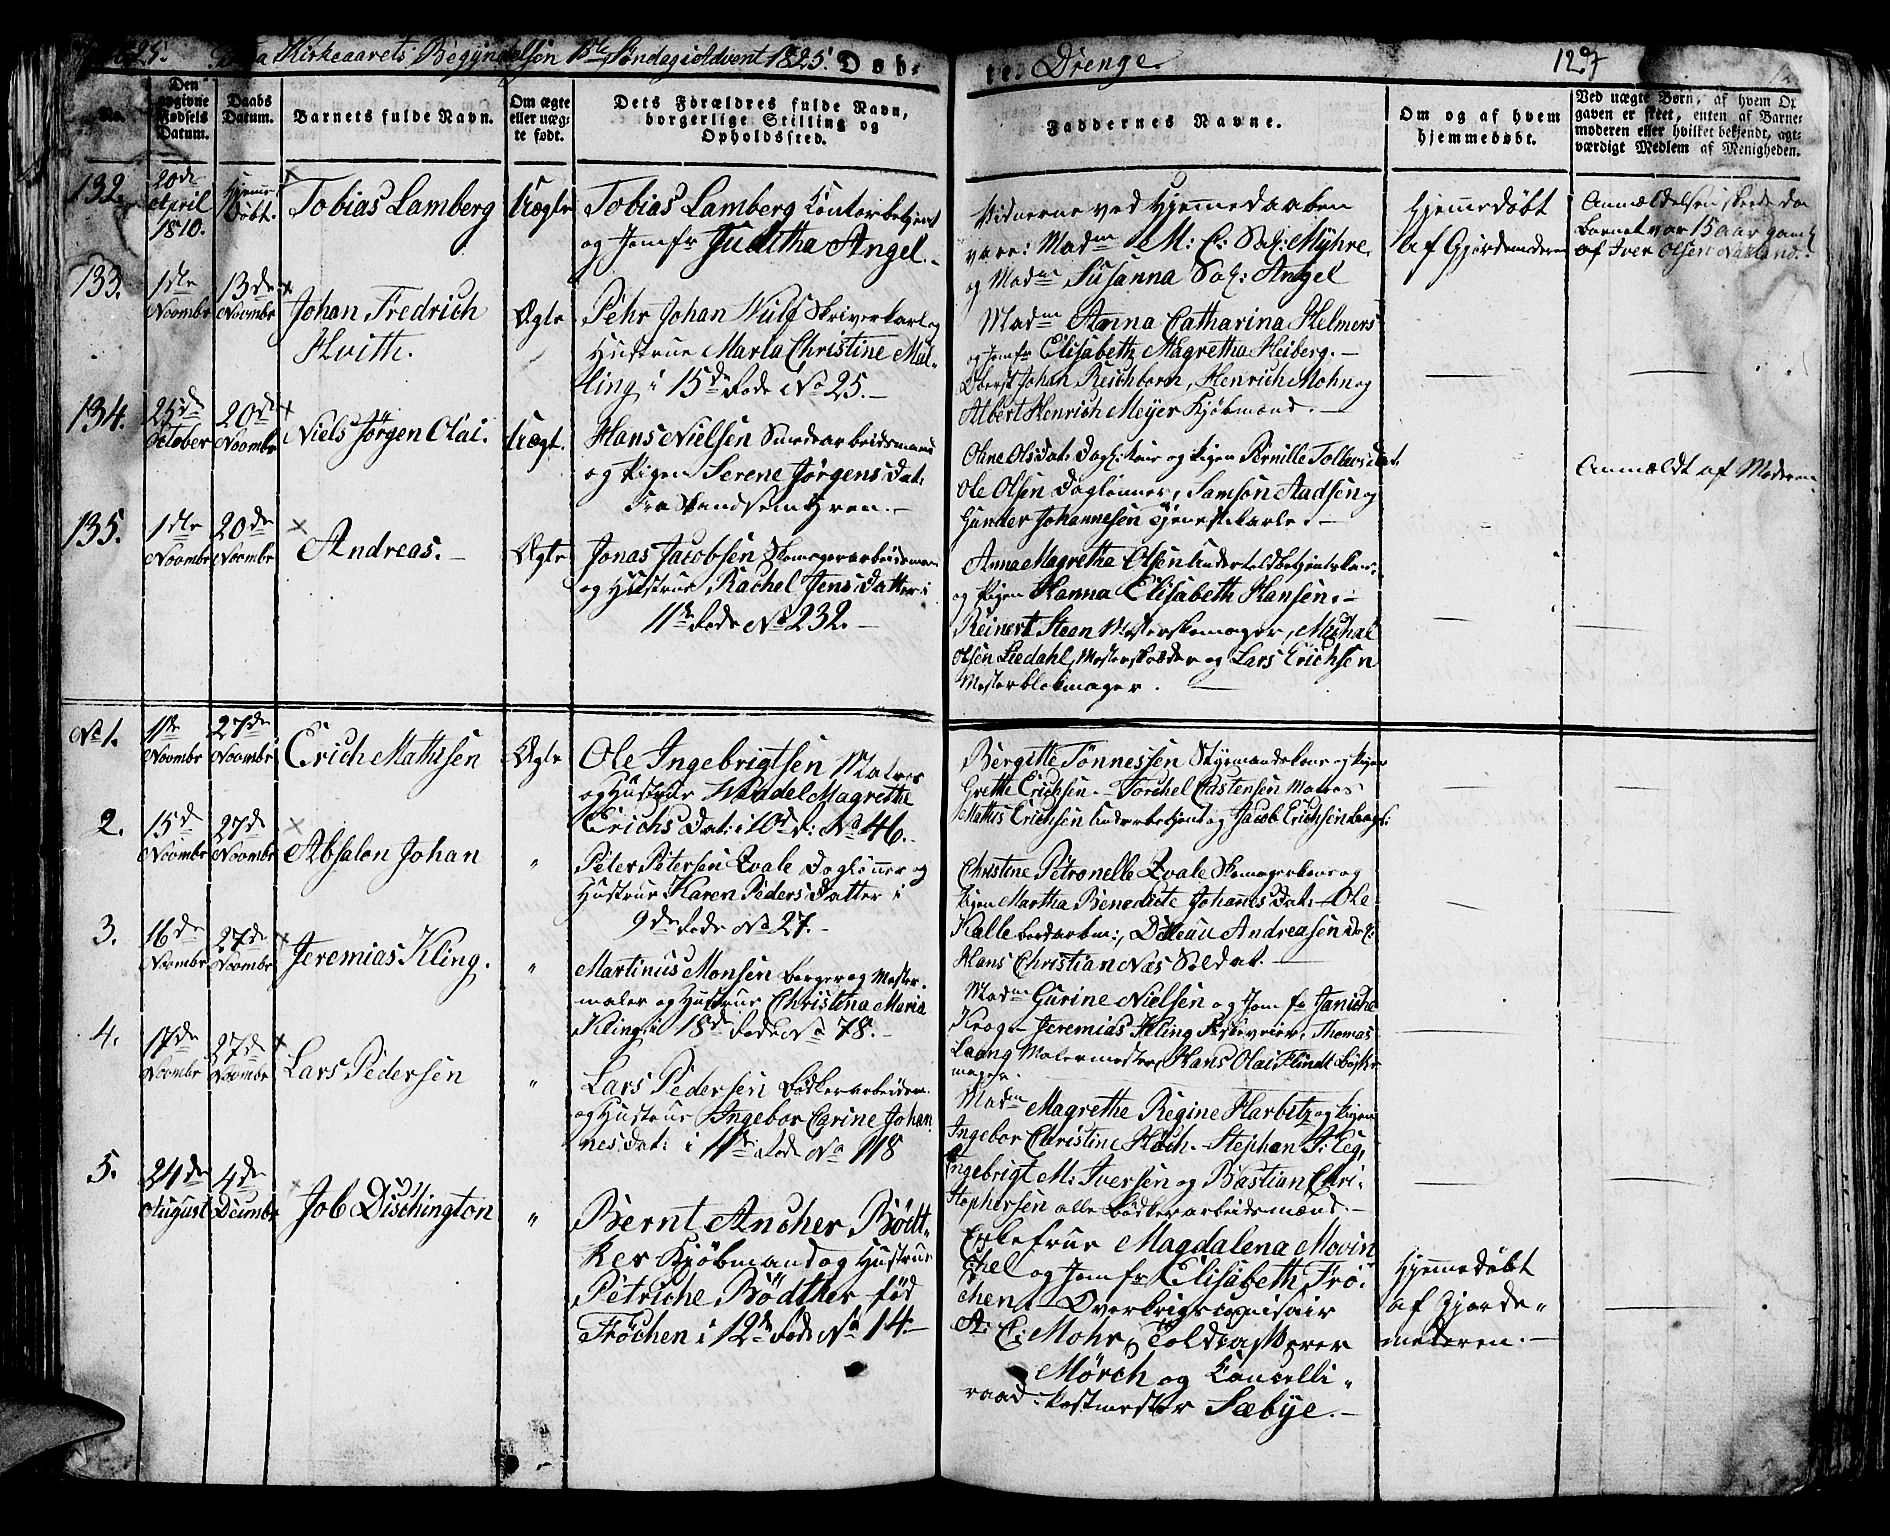 Kirkeaarets Begyndelsen 1ste Søndag i Advent 1825. Døb-
te. Drenge. 127
No.
Den
opgivne
Fødsels
Datum.
Daabs
Datum.
Barnets fulde Navn.
Om ægte
eller uæg-
te født.
Dets Forældres fulde Navn,
borgerlige Stilling og
Opholdssted.
Faddernes Navne.
Om og af hvem
hjemmedøbt.
Ved uægte Børn, af hvem Op-
gaven er skeet, enten af Barne-
moderen eller hvilket bekjendt, agt-
værdigt Medlem af Menigheden.
132.
20de
April
1810.
Hjemme-
Døbt.
Tobias Lamberg
Uægte
Tobias Lamberg Contorbetjent
og Jomfr Juditha Angel.-
Vidnerne ved Hjemmedaaben
vare: Madm M: C: Sal: Myhre
og Madm Susanna Sal: Angel
Hjemmedøbt
af Gjordemoderen
Anmældelsen skeede da
Barnet var 15 Aar gam
af Iver Olsen
133.
1ste
Novmbr
13de
Novmbr
Johan Fredrich
Hvith.
Ægte
Pehr Johan Skriverkarl og
Hustrue Maria Christine Mal-
ling i 15de Rode No 25.-
Madm Anna Catharina Helmers
og Jomfr Elisabeth Magretha Heiberg.-
Oberst Johan Reichborn, Henrich Mohn og
Albert Henrich Meyer Kjøbmænd.-
134.
25de
October
20de
Novmbr
Niels Jørgen Olai.
Uægt.
Hans Nielsen Smedearbeidsmand
og Pigen Serene Jørgens Dat:
fra
Oline Olsdat: Dagl: Kone og Pigen Pernille Tollevsdat
Ole Olsen Dagleiner, Samson Aadsen og
Gunder Johannesen Tjenestekarle.-
Anmældt af Moderen
135.
1ste
Novmbr
20de
Novmbr
Andreas.-
Ægte
Jonas Jacobsen Skomagerarbeidsman
og Hustrue Rachel Jens Datter i
11te Rode No 232.-
Anna Magretha Olsen Undertoldbetjentskone
og Pigen Hanna Elisabeth Hansen.-
Reinert Steen Mesterskomager, Michal
Olsen Liedahl, Mesterskrædder og Lars Erichsen
Mesterblokmager.
No 1.
11te
Novmbr
27de
Novmbr
Erich Mathisen
Ægte
Ole Ingebrigtsen Matros
og Hustrue Wendel Magrethe
Erichs Dat: i 10de R: No 46.-
Bergitte Tønnessen Styrmandskone og Pigen
Grethe Erichsen.- Torchel Castensen Matros
Mathis Erichsen Underbetjent og Jacob Erichsen
2.
15de
Novmbr
27de
Novmbr
Absalon Johan
"
Peter Petersen Zvale Dagleiner og
Hustrue Karen Peders Datter i
9de Rode No 27.-
Christine Petronelle Zvale Skomagerkone og
Pigen Martha Benedicte Johannes Dat:- Ole
Kalle Andreasen
Hans Christian Næs Soldat.
3.
16de
Novmbr
27de
Novmbr
Jeremias Kling.
"
Martinus Monsen Borger og Mester-
maler og Hustrue Christina Maria
Kling i 18de Rode No 78.-
Madm Gurine Nielsen og Jomfr Janiche
Krog.- Jeremias Kling Thomas
Laang Malermester, Hans Olai Flindt Bøsse-
mager.
4.
17de
Novmbr
27de
Novmbr
Lars Pedersen
"
Lars Pedersen Bødkerarbeidsm.
og Hustrue Ingebor Carine Johan
nes Dat: i 11te Rode No 118
Madm Magrethe Regine Harbitz og Pigen
Ingebor Christine Höch.- Stephan P: Eeg,
Ingebrigt M: Iversen og Bastian Chri-
stophersen alle Bødkerarbeidsmænd.-
5.
24de
August
4de
Decmbr
Job Dischington
"
Bernt Ancher Bødt-
ker Kjøbmand og Hustrue
Petriche Bødtker fød
Fröchen i 12de Rode No 14.-
Enkefrue Magdalena Movin
ckel og Jomfr Elisabeth Frö-
chen.- Overkrigscomisair
A: C: Mohr, Toldcasserer
Mörch og Cancelli-
raad Postmester Sæbye.-
Hjemmedøbt
af Gjorde-
moderen.-